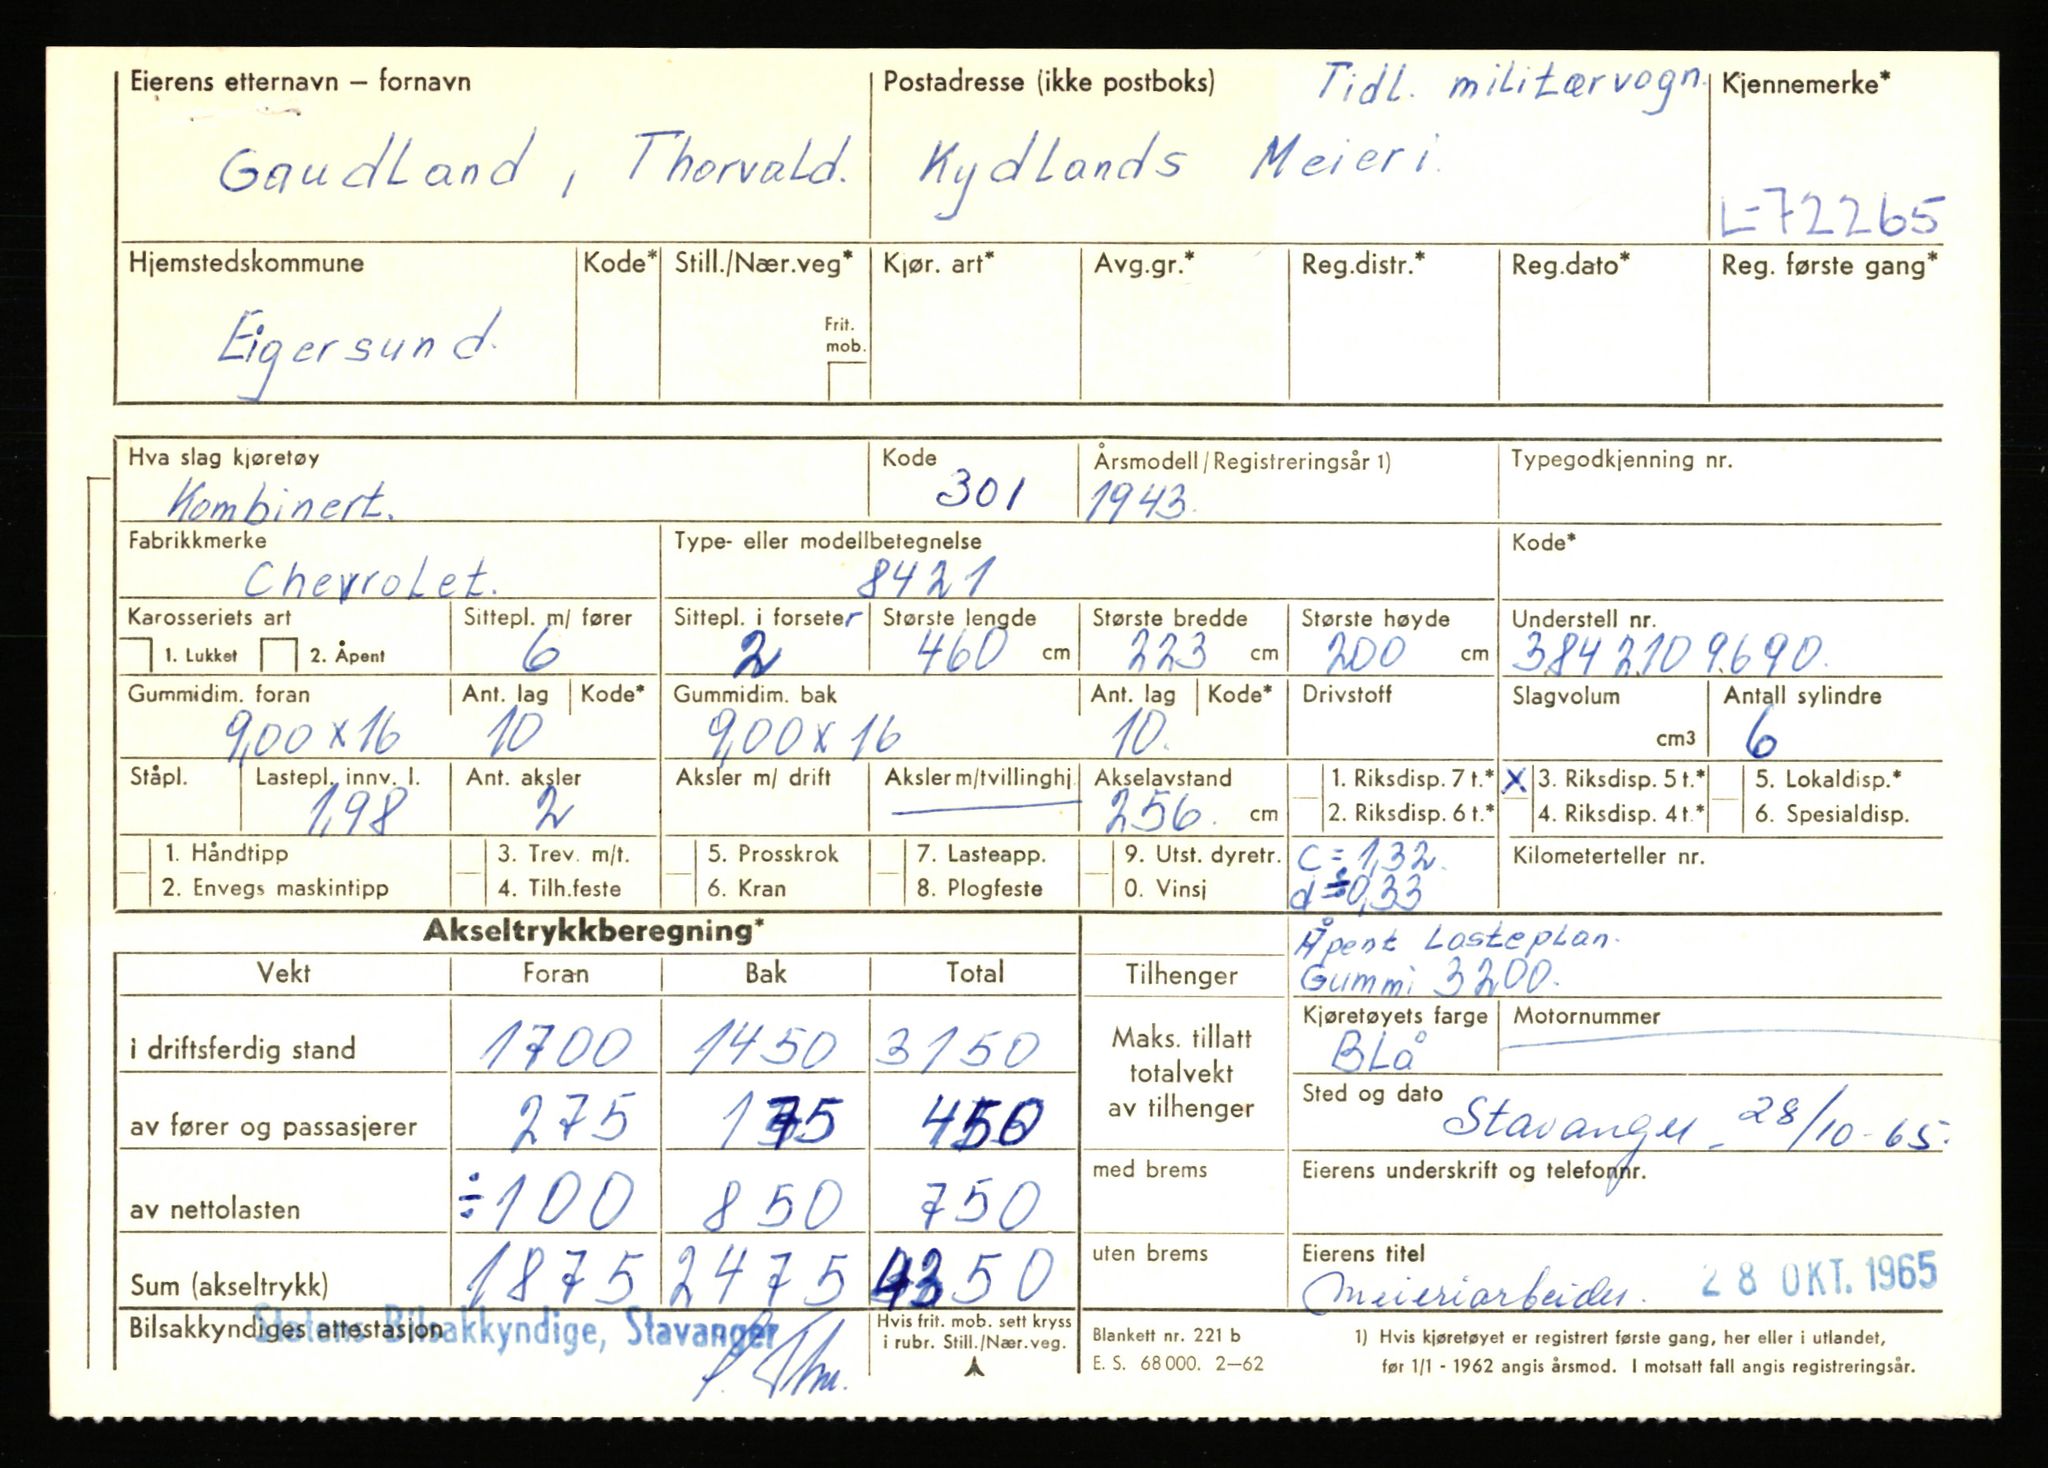 Eierens etternavn – fornavn Postadresse (ikke postboks) Tidl. militærvogn. Kjennemerke*
Gaudland, Thorvald. Kydlands Meieri. L-72265
Hjemstedskommune Kode* Still./Nær.veg* Kjør. art* Avg.gr.* Reg.distr.* Reg.dato* Reg. første gang*
Eigersund. Frit. mob.
Hva slag kjøretøy Kode Årsmodell/Registreringsår 1) Typegodkjenning nr.
Kombinert. 301 1943.
Fabrikkmerke Type- eller modellbetegnelse Kode*
Chevrolet. 8421
Karosseriets art Sittepl. m/ fører Sittepl. i forseter Største lengde Største bredde Største høyde Understell nr.
1. Lukket 2. Åpent 6 2 460 cm 223 cm 200 cm 3842109690.
Gummidim. foran Ant. lag Kode* Gummidim. bak Ant. lag Kode* Drivstoff Slagvolum Antall sylindre
9,00 x 16 10 9,00 x 16 10. cm3 6
Ståpl. Lastepl. innv. l. Ant. aksler Aksler m/ drift Aksler m/tvillinghj. Akselavstand 1. Riksdisp. 7 t.* X 3. Riksdisp. 5 t.* 5. Lokaldisp.*
1,98 2 256. cm 2. Riksdisp. 6 t.* 4. Riksdisp. 4 t.* 6. Spesialdisp.
1. Håndtipp 3. Trev. m/t. 5. Prosskrok 7. Lasteapp. 9. Utst. dyretr. C = 1,32. Kilometerteller nr.
2. Envegs maskintipp 4. Tilh.feste 6. Kran 8. Plogfeste 0. Vinsj d = ÷0,33
Akseltrykkberegning* Åpent Lasteplan.
Vekt Foran Bak Total Tilhenger Gummi 3200.
i driftsferdig stand 1700 1450 3150 Maks. tillatt totalvekt av tilhenger Kjøretøyets farge Motornummer
Blå
av fører og passasjerer 275 175 450 Sted og dato Stavanger 28/10-65.
av nettolasten ÷100 850 750 med brems Eierens underskrift og telefonnr.
Sum (akseltrykk) 1875 2475 4350 uten brems Eierens titel
Meieriarbeider. 28 OKT. 1965
Bilsakkyndiges attestasjon Statens Bilsakkyndige, Stavanger Hvis frit. mob. sett kryss i rubr. Still./Nær.veg. Blankett nr. 221 b 1) Hvis kjøretøyet er registrert første gang, her eller i utlandet,
E. S. 68 000. 2–62 før 1/1 - 1962 angis årsmod. I motsatt fall angis registreringsår.